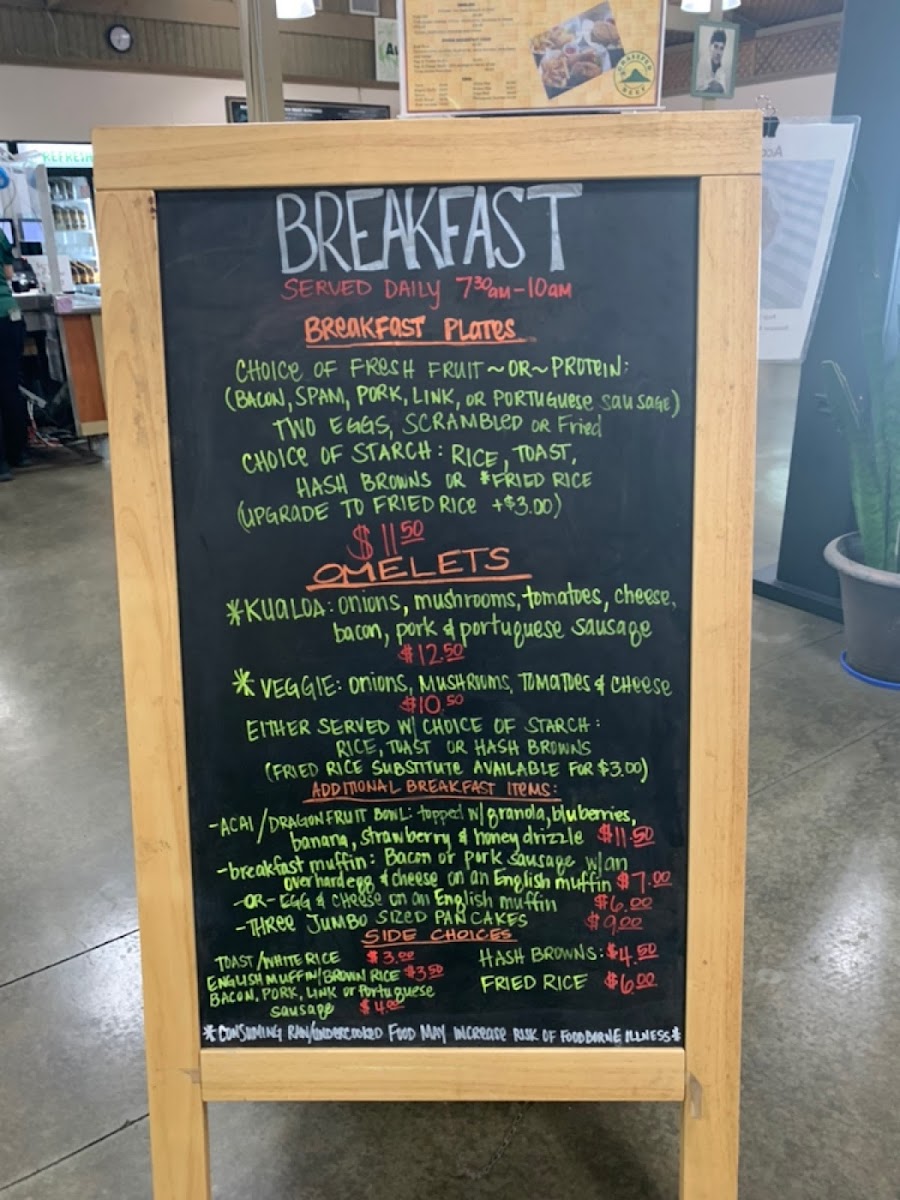 REFRESH
BREAKFAST
SERVED DAILY 7³⁰AM-10AM
BREAKFAST PLATES
CHOICE OF FRESH FRUIT ~OR~ PROTEIN:
(BACON, SPAM, PORK, LINK, OR PORTUGUESE SAUSAGE)
TWO EGGS, SCRAMBLED OR Fried
CHOICE OF STARCH: RICE, TOAST,
HASH BROWNS OR *FRIED RICE
(UPGRADE TO FRIED RICE +$3.00)
$11.50
OMELETS
*KUALOA: onions, mushrooms, tomatoes, cheese,
bacon, pork & portuguese sausage
$12.50
*VEGGIE: onions, MUSHROOMS, TOMATOES & CHEESE
$10.50
EITHER SERVED W/ CHOICE OF STARCH:
RICE, TOAST OR HASH BROWNS
(FRIED RICE SUBSTITUTE AVAILABLE FOR $3.00)
ADDITIONAL BREAKFAST ITEMS:
-ACAI/DRAGONFRUIT BOWL: topped w/granola, bluberries,
banana, strawberry & honey drizzle $11.50
-breakfast muffin: Bacon or pork sausage w/an
over hard egg & cheese on an English muffin $7.00
-OR- EGG & CHEESE on an English muffin $6.00
-THREE JUMBO SIZED PANCAKES $9.00
SIDE CHOICES
TOAST/WHITE RICE $3.00
ENGLISH MUFFIN/BROWN RICE $3.50
BACON, PORK, LINK or Portuguese
sausage $4.00
HASH BROWNS: $4.50
FRIED RICE $6.00
*CONSUMING RAW/UNDERCOOKED FOOD MAY INCREASE RISK OF FOODBORNE ILLNESS*